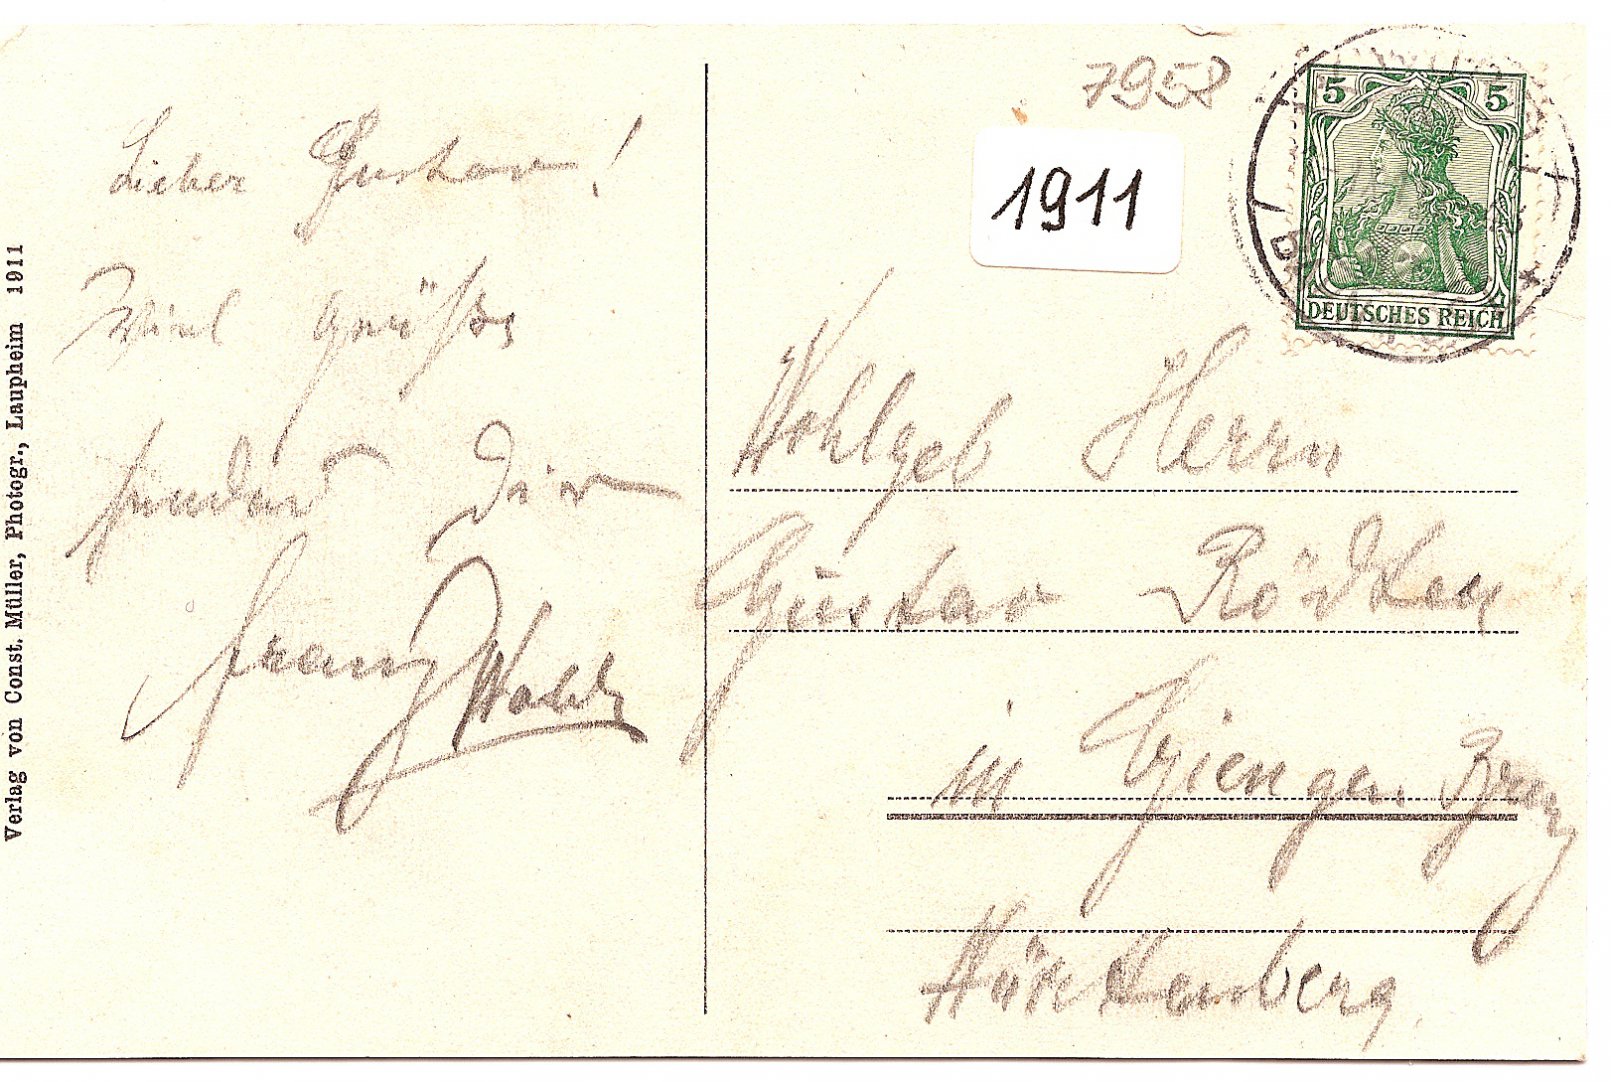 Verlag von Const. Müller, Photogr., Laupheim 1911
Lieber Gustav!
Viel Grüße
sendet Dir
Franz
7958
1911
5 5
DEUTSCHES REICH
Wohlgeb Herrn
Gustav
in Giengen Brenz
Württemberg